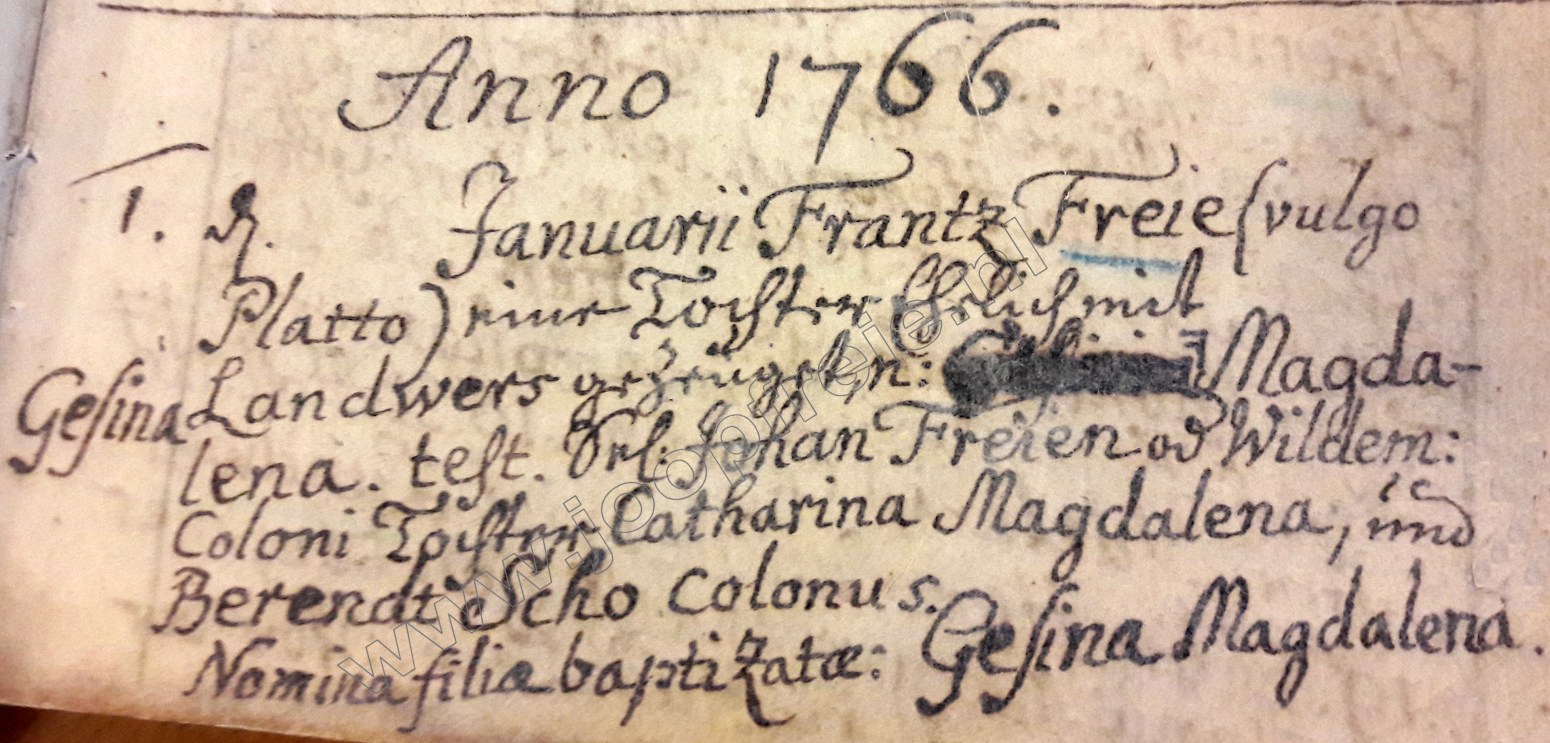 Anno 1766.
1. d. Januarii Frantz Freie (vulgo
Platto) eine Tochter Ehelich mit
Landwers gezeuget, n: Magda-
Gesina
lena. test. Sel: Johan Freien od Wildem:
Coloni Tochter Catharina Magdalena, und
Berendt Scho Colonus.
Nomina filiæ baptizatæ: Gesina Magdalena.
www.joopfreie.nl